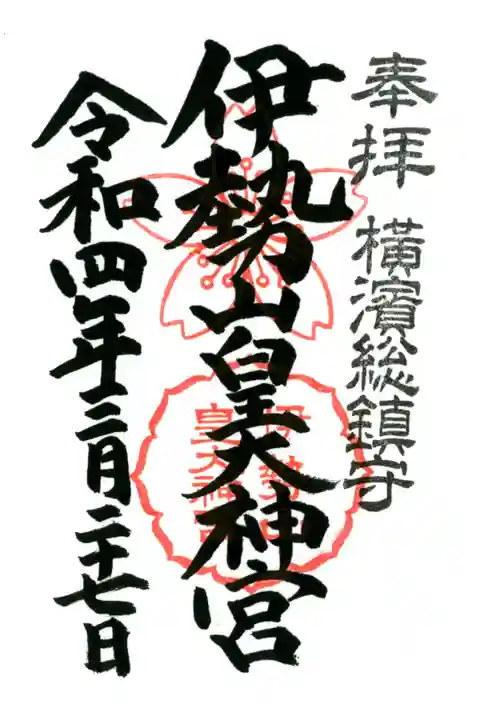 奉拝 横濱総鎮守
伊勢山皇大神宮
伊勢山
皇大神宮
令和四年三月二十七日